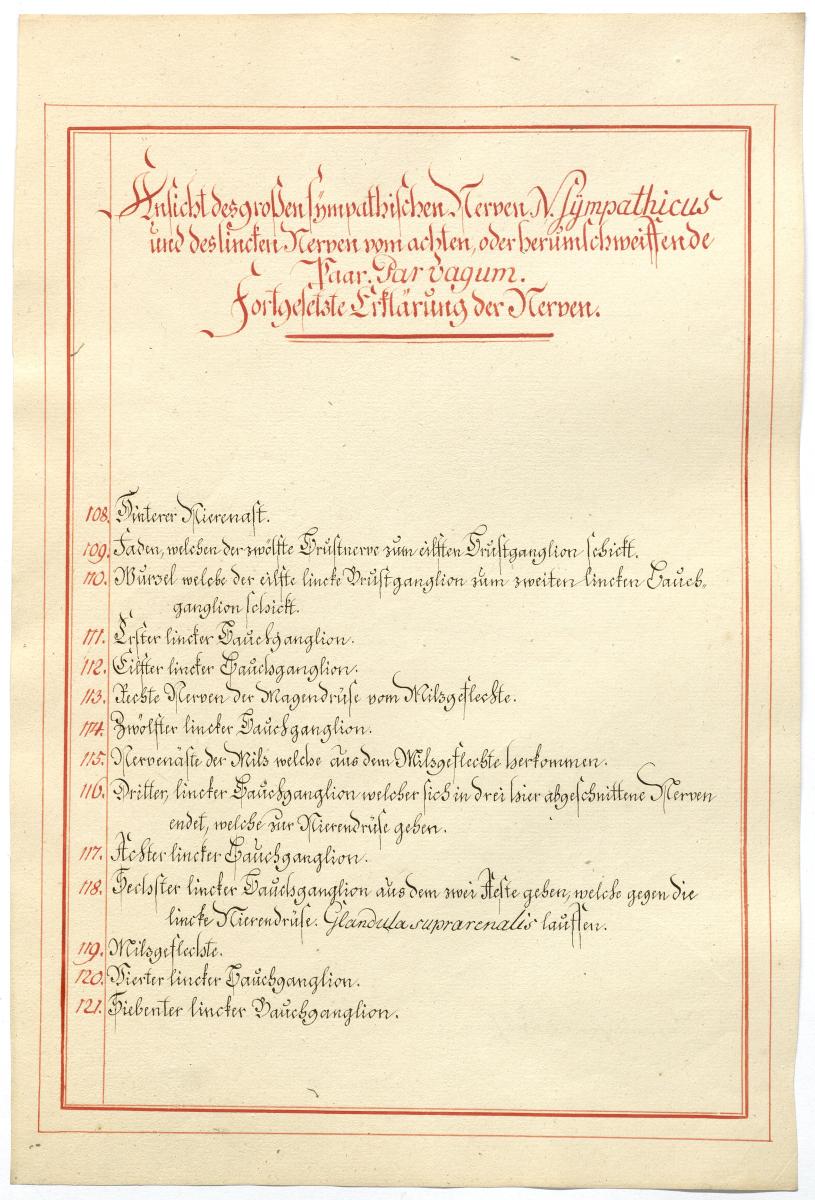 Ansicht des großen sympathischen Nerven N. Sÿmpathicus
und des lincken Nerven vom achten, oder herumschweiffende
Paar. Par vagum.
Fortgesetzte Erklärung der Nerven.
108. Hinterer Nierenast.
109. Faden, welchen der zwölfte Brustnerve zum eilften Brustganglion schickt.
110. Wurzel welche der eilfte lincke Brustganglion zum zweiten lincken Bauch-
ganglion schickt.
111. Erster lincker Bauchganglion.
112. Eilfter lincker Bauchganglion.
113. Rechte Nerven der Magendrüse vom Milzgeflechte.
114. Zwölfter lincker Bauchganglion.
115. Nervenäste der Milz welche aus dem Milzgeflechte herkommen.
116. Dritter, lincker Bauchganglion welcher sich in drei hier abgeschnittene Nerven
endet, welche zur Nierendrüse gehen.
117. Achter lincker Bauchganglion.
118. Sechster lincker Bauchganglion aus dem zwei Aeste gehen, welche gegen die
lincke Nierendrüse. Glandula suprarenalis lauffen.
119. Milzgeflechte.
120. Vierter lincker Bauchganglion.
121. Siebenter lincker Bauchganglion.